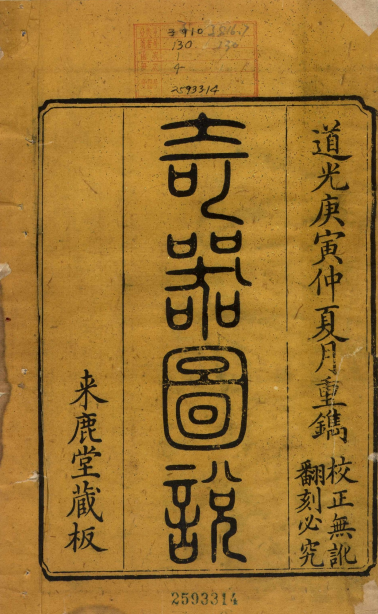 子910
130
1
4
2593314
道光庚寅仲夏月重鐫
校正無訛
翻刻必究
奇器圖說
来鹿堂藏板
2593314